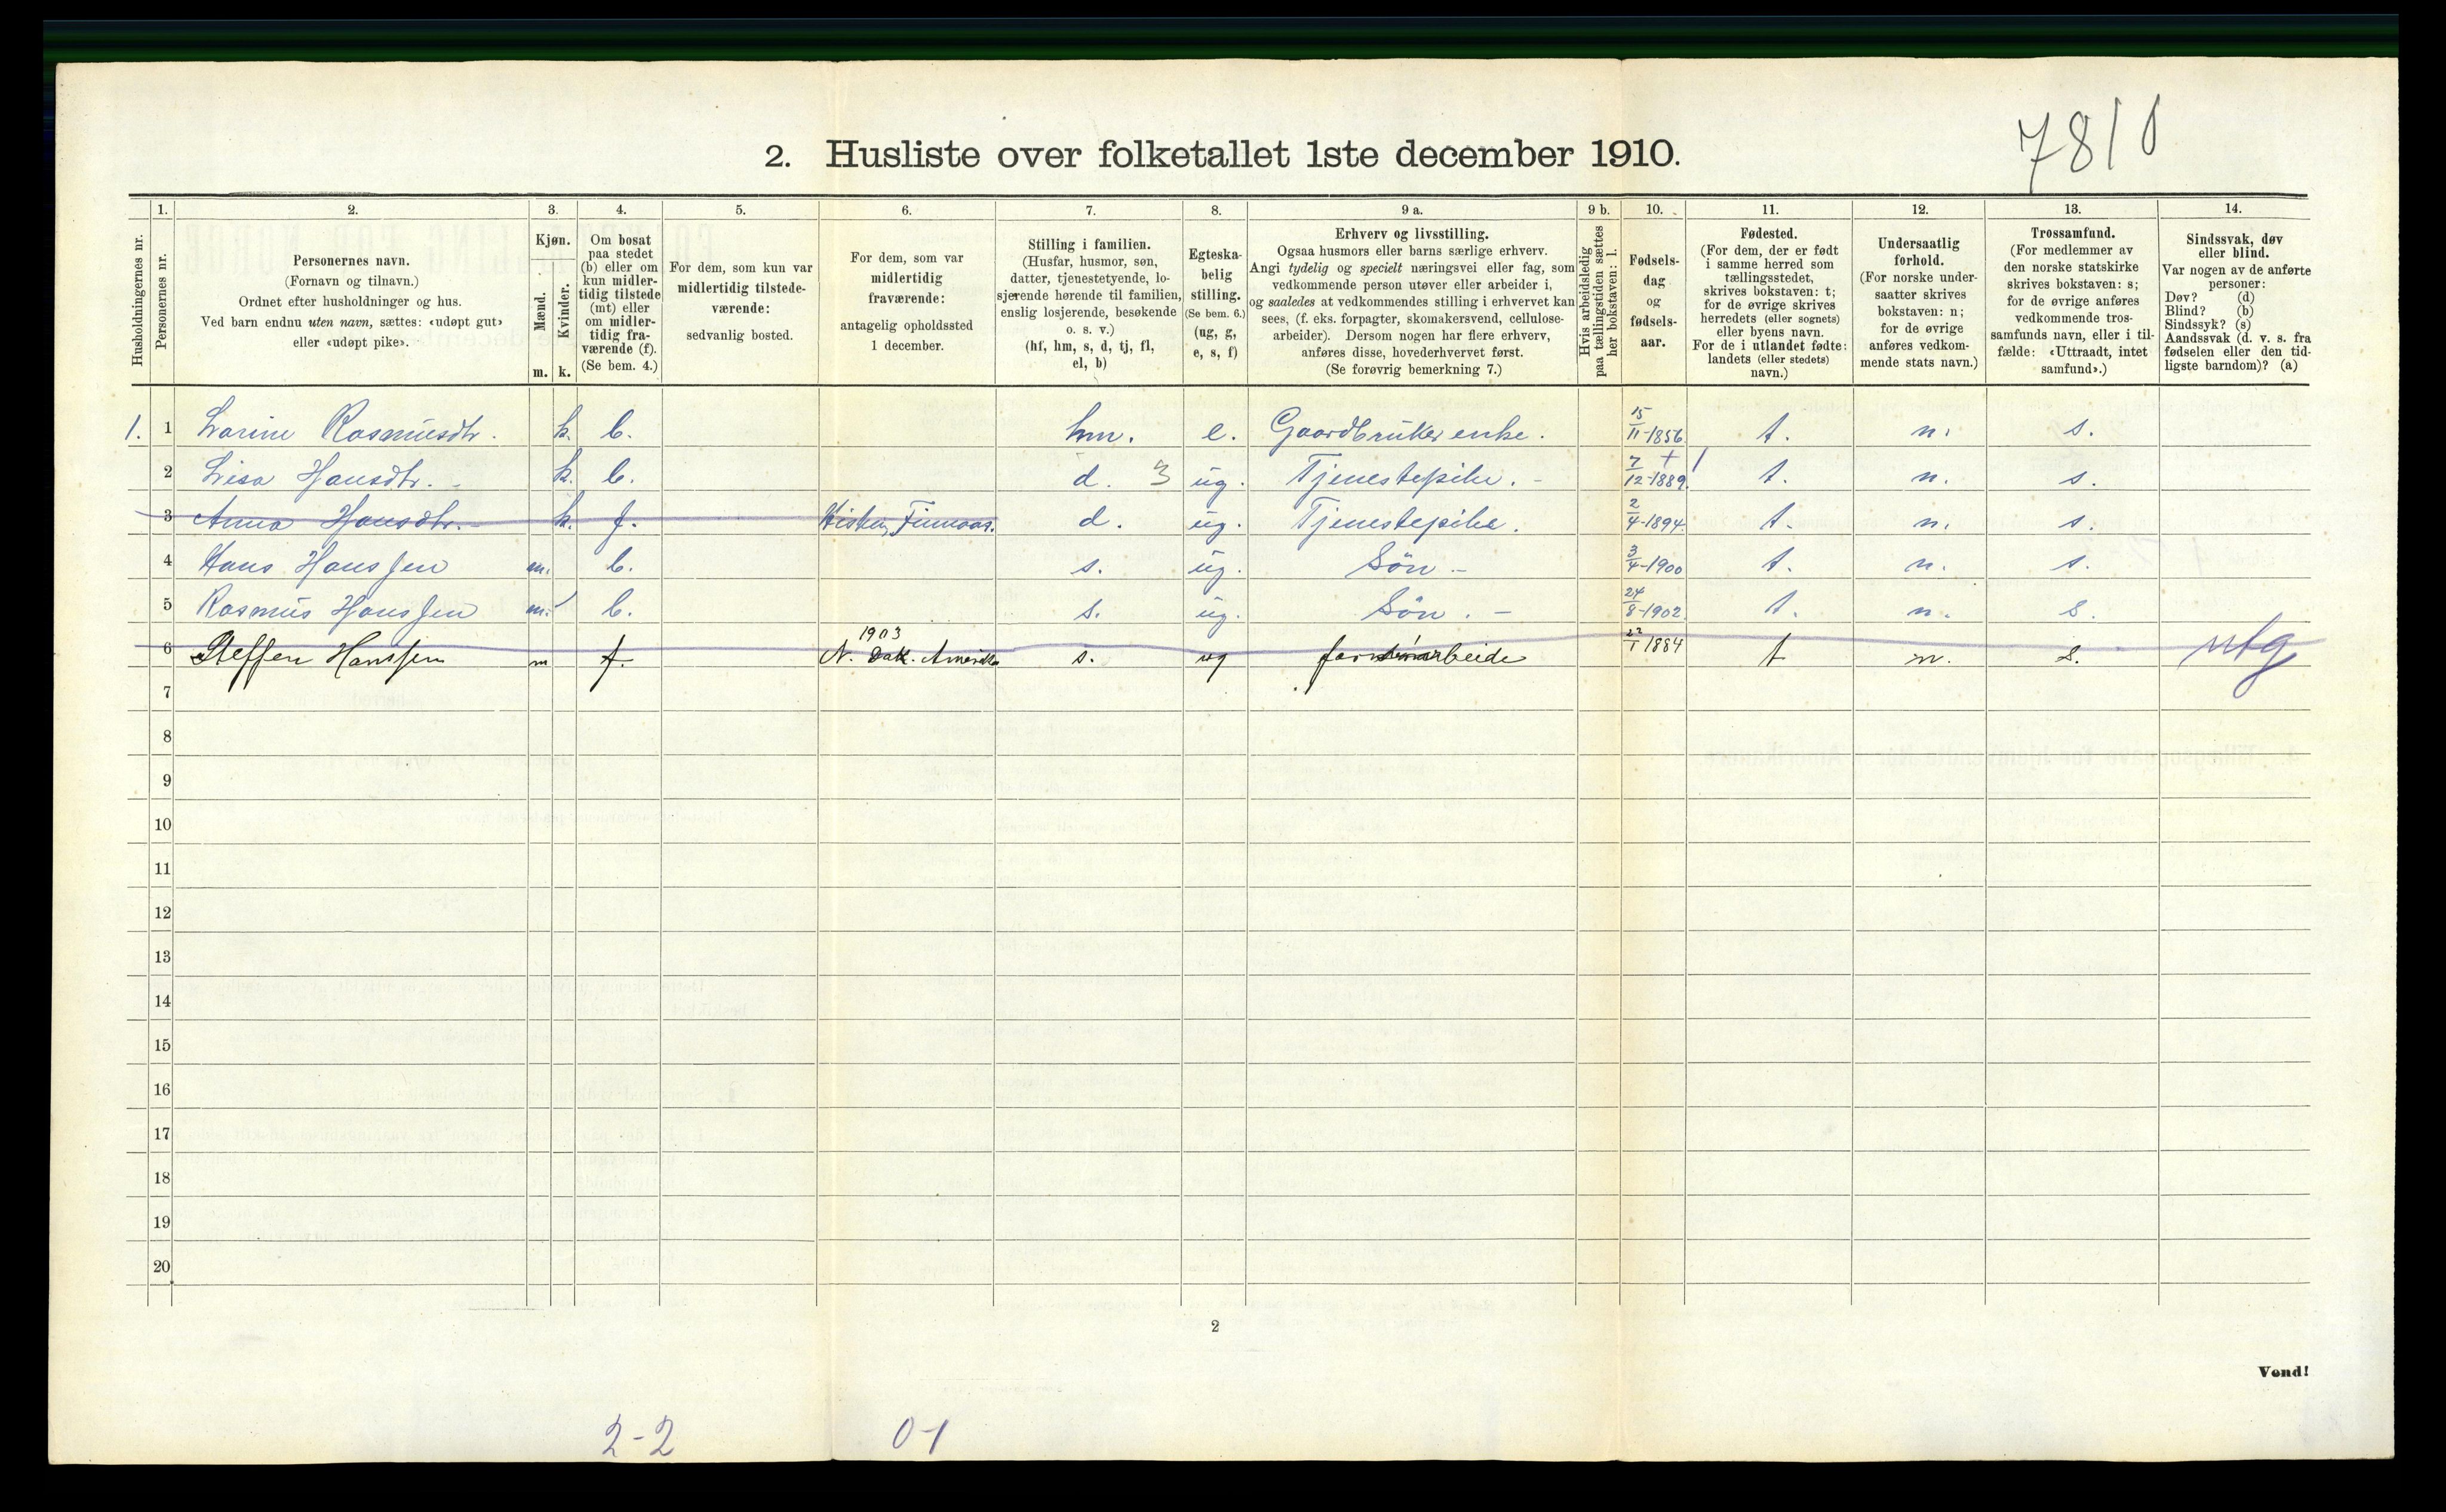 7810
2. Husliste over folketallet 1ste december 1910.
Husholdningernes nr.
1. Personernes nr.
2. Personernes navn.
(Fornavn og tilnavn.)
Ordnet efter husholdninger og hus.
Ved barn endnu uten navn, sættes: «udøpt gut»
eller «udøpt pike».
3. Kjøn.
Mænd. Kvinder.
m. k.
4. Om bosat
paa stedet
(b) eller om
kun midler-
tidig tilstede
(mt) eller
om midler-
tidig fra-
værende (f).
(Se bem. 4.)
5. For dem, som kun var
midlertidig tilstede-
værende:
sedvanlig bosted.
6. For dem, som var
midlertidig
fraværende:
antagelig opholdssted
1 december.
7. Stilling i familien.
(Husfar, husmor, søn,
datter, tjenestetyende, lo-
sjerende hørende til familien,
enslig losjerende, besøkende
o. s. v.)
(hf, hm, s, d, tj, fl,
el, b)
8. Egteska-
belig
stilling.
(Se bem. 6.)
(ug, g,
e, s, f)
9 a. Erhverv og livsstilling.
Ogsaa husmors eller barns særlige erhverv.
Angi tydelig og specielt næringsvei eller fag, som
vedkommende person utøver eller arbeider i,
og saaledes at vedkommendes stilling i erhvervet kan
sees, (f. eks. forpagter, skomakersvend, cellulose-
arbeider). Dersom nogen har flere erhverv,
anføres disse, hovederhvervet først.
(Se forøvrig bemerkning 7.)
9 b. Hvis arbeidsledig
paa tællingstiden sættes
her bokstaven: l.
10. Fødsels-
dag
og
fødsels-
aar.
11. Fødested.
(For dem, der er født
i samme herred som
tællingsstedet,
skrives bokstaven: t;
for de øvrige skrives
herredets (eller sognets)
eller byens navn.
For de i utlandet fødte:
landets (eller stedets)
navn.)
12. Undersaatlig
forhold.
(For norske under-
saatter skrives
bokstaven: n;
for de øvrige
anføres vedkom-
mende stats navn.)
13. Trossamfund.
(For medlemmer av
den norske statskirke
skrives bokstaven: s;
for de øvrige anføres
vedkommende tros-
samfunds navn, eller i til-
fælde: «Uttraadt, intet
samfund».)
14. Sindssvak, døv
eller blind.
Var nogen av de anførte
personer:
Døv? (d)
Blind? (b)
Sindssyk? (s)
Aandssvak (d. v. s. fra
fødselen eller den tid-
ligste barndom)? (a)
1. 1 Larine Rasmusdtr. k. b. hm. e. Gaardbruker enke. 15/11-1856 t. n. s.
2 Lisa Hansdtr. - k. b. d. 3 ug. Tjenestepike. - 7/12-1889 t. n. s.
3 Anna Hansdtr. - k. f. Finnaas. d. ug. Tjenestepike. 2/4-1894 t. n. s.
4 Hans Hanssen m. b. s. ug. Søn - 3/4-1900 t. n. s.
5 Rasmus Hanssen m. b. s. ug. Søn. - 24/8-1902 t. n. s.
1903
6 Steffen Hanssen m f. N. Dak. Amerika s. ug 1884 t n. s. utg
7
8
9
10
11
12
13
14
15
16
17
18
19
20
2
Vend!
2-2 0-1